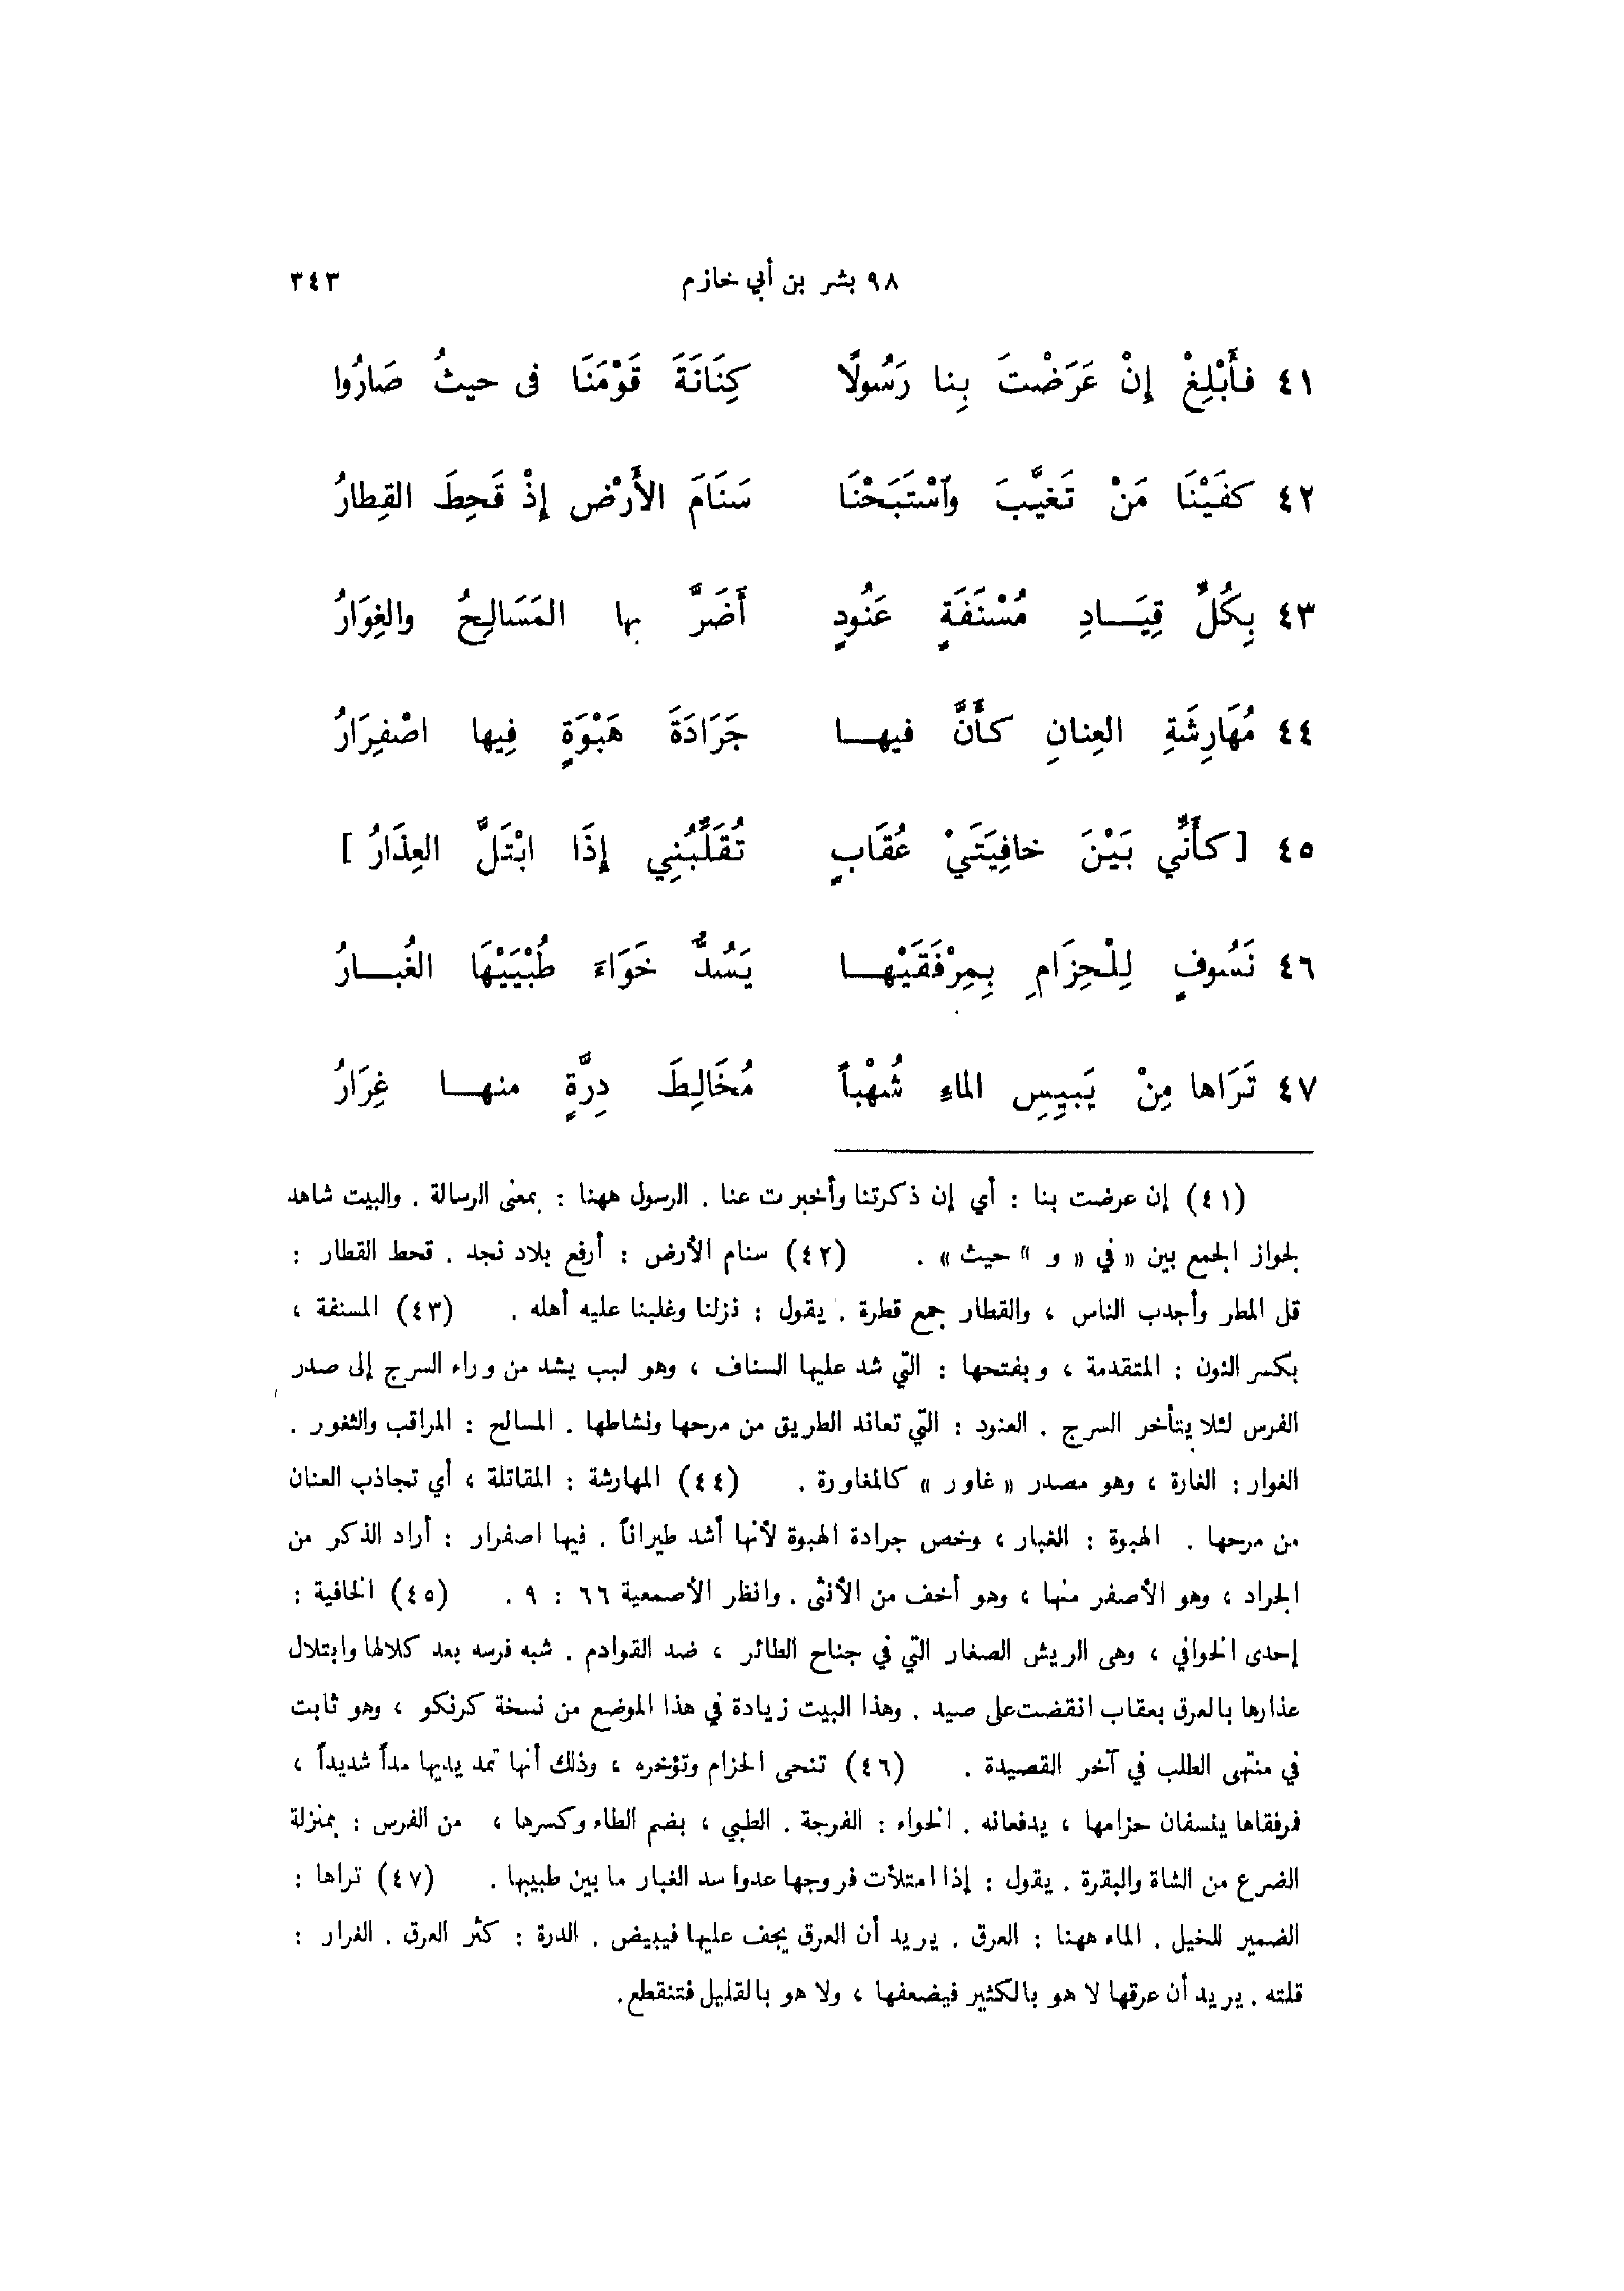 ٩٨ بشر بن أبي خازم ٣٤٣
٤١ فأَبْلِغْ إِنْ عَرَضْتَ بِنا رَسُولًا كِنَانَةَ قَوْمَنَا فى حيثُ صَارُوا
٤٢ كفَيْنَا مَنْ تَغيَّبَ وٱسْتَبَحْنَا سَنَامَ الأَرْضِ إِذْ قَحِطَ القِطارُ
٤٣ بِكُلِّ قِيَـــادِ مُسْنَفَةٍ عَنُودٍ أَضَرَّ بها المَسَالِحُ والغِوَارُ
٤٤ مُهَارِشَةِ العِنانِ كأَنَّ فيهـــا جَرَادَةَ هَبْوَةٍ فِيها اصْفِرَارُ
٤٥ [ كأَنِّي بَيْنَ خافِيَتَيْ عُقَابٍ تُقَلِّبُنِي إِذَا ابْتَلَّ العِذَارُ ]
٤٦ نَسُوفٍ لِلْحِزَامِ بِمِرْفَقَيْهـــا يَسُدُّ خَوَاءَ طُبْيَيْهَا الغُبـــارُ
٤٧ تَرَاها مِنْ يَبِيسِ الماءِ شُهْباً مُخَالِطَ دِرَّةٍ منهـــا غِرَارُ
(٤١) إن عرضت بنا : أي إن ذكرتنا وأخبرت عنا . الرسول ههنا : بمعنى الرسالة . والبيت شاهد
لجواز الجمع بين « في » و « حيث » . (٤٢) سنام الأرض : أرفع بلاد نجد . قحط القطار :
قل المطر وأجدب الناس ، والقطار جمع قطرة . يقول : نزلنا وغلبنا عليه أهله . (٤٣) المسنفة ،
بكسر النون : المتقدمة ، وبفتحها : التي شد عليها السناف ، وهو لبب يشد من وراء السرج إلى صدر
الفرس لئلا يتأخر السرج . العنود : التي تعاند الطريق من مرحها ونشاطها . المسالح : المراقب والثغور .
الغوار : الغارة ، وهو مصدر « غاور » كالمغاورة . (٤٤) المهارشة : المقاتلة ، أي تجاذب العنان
من مرحها . الهبوة : الغبار ، وخص جرادة الهبوة لأنها أشد طيراناً . فيها اصفرار : أراد الذكر من
الجراد ، وهو الأصفر منها ، وهو أخف من الأنثى . وانظر الأصمعية ٦٦ : ٩ . (٤٥) الخافية :
إحدى الخوافي ، وهى الريش الصغار التي في جناح الطائر ، ضد القوادم . شبه فرسه بعد كلالها وابتلال
عذارها بالعرق بعقاب انقضت على صيد . وهذا البيت زيادة في هذا الموضع من نسخة كرنكو ، وهو ثابت
في منتهى الطلب في آخر القصيدة . (٤٦) تنحى الحزام وتؤخره ، وذلك أنها تمد يديها مداً شديداً ،
فمرفقاها ينسفان حزامها ، يدفعانه . الخواء : الفرجة . الطبي ، بضم الطاء وكسرها ، من الفرس : بمنزلة
الضرع من الشاة والبقرة . يقول : إذا امتلأت فروجها عدوا سد الغبار ما بين طبييها . (٤٧) تراها :
الضمير للخيل . الماء ههنا : العرق . يريد أن العرق يجف عليها فيبيض . الدرة : كثر العرق . الغرار :
قلته . يريد أن عرقها لا هو بالكثير فيضعفها ، ولا هو بالقليل فتنقطع.